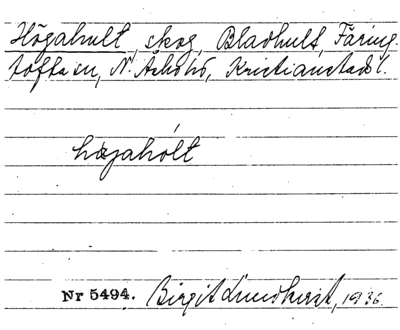 Högahult, skog, Bladhult, Färing-
tofta sn, N. Åsbo hd, Kristianstads l.
høgahólt
Nr 5494. Birgit Lundkvist, 1936.